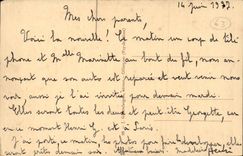 14 juin 1937.
Mes chers parents,
Voici la nouvelle ! Ce matin un coup de télé
phone et Mlle Marinette au bout du fil, nous an-
nonçant que son auto est réparée et veut venir nous
voir aussi je l'ai invitée pour demain mardi.
Elles seront toutes les deux et peut être Georgette, car
en ce moment Henri est à Paris.
J'ai porté ce matin les photos pour développer, elles
seront prêtes demain soir.